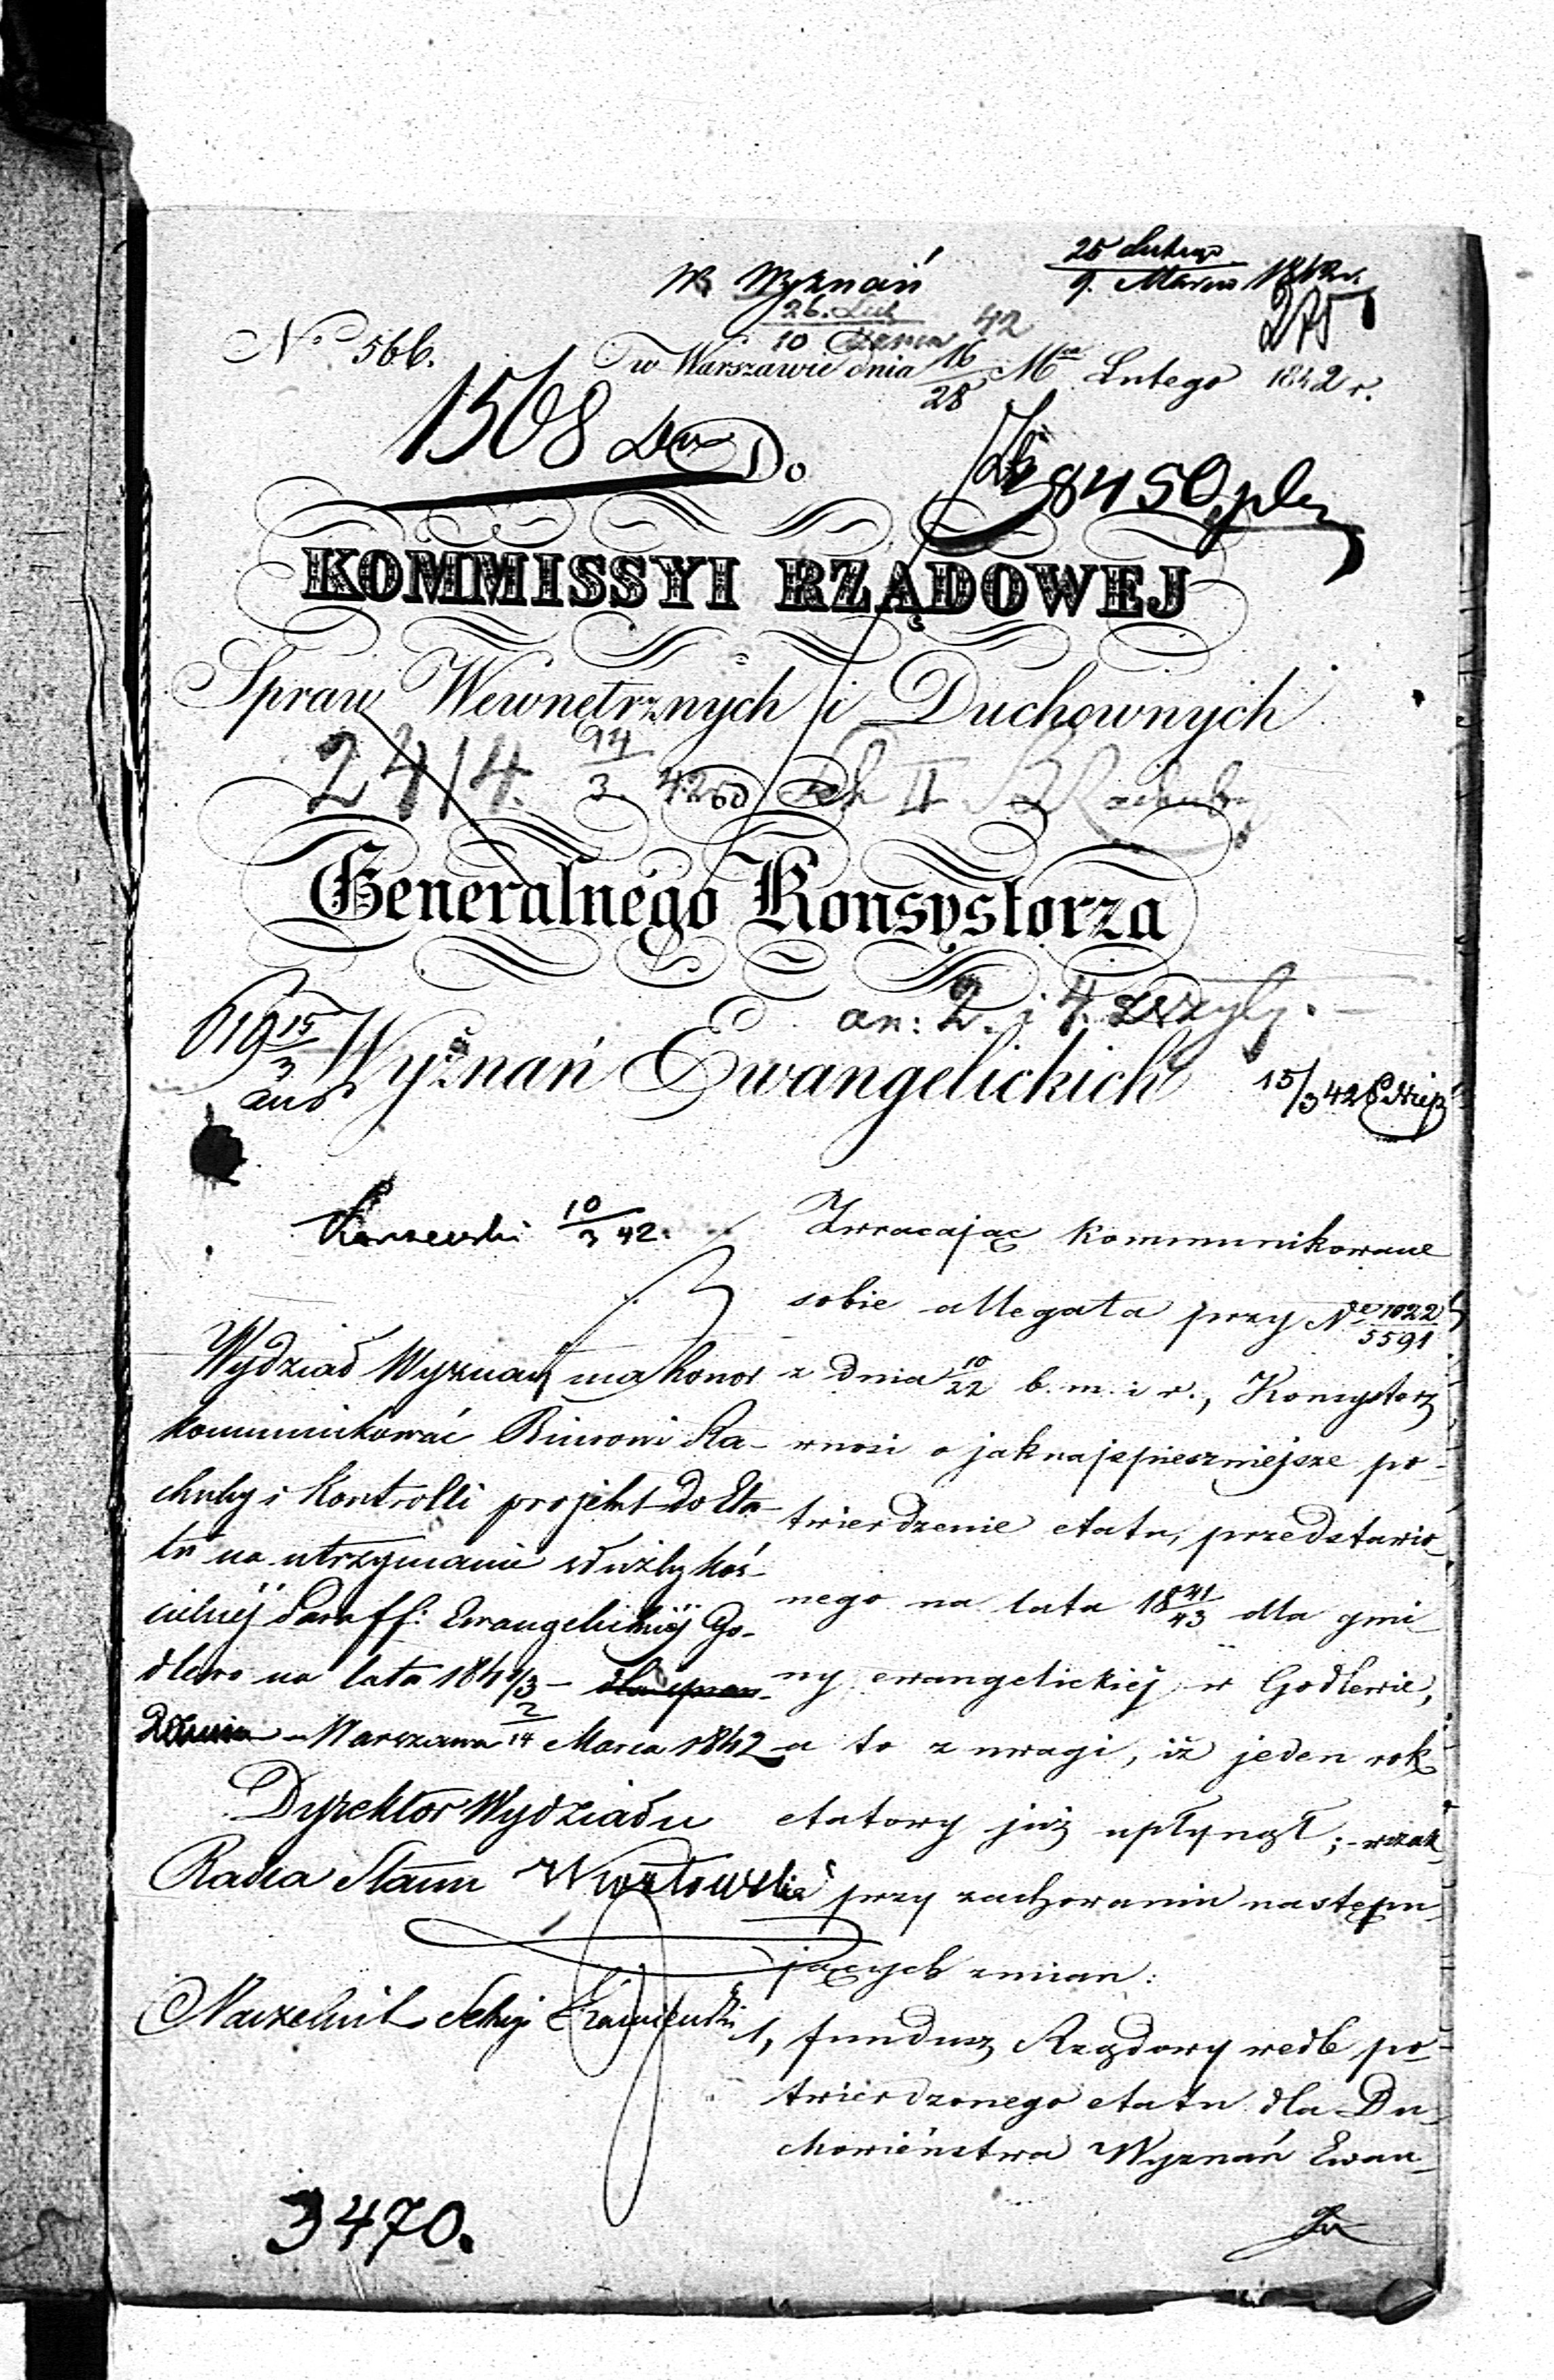 W. Wyznań
25 Lutego
9. Marca 1842 r.
26. Lut
10 Marca 42
275
No 566.
w Warszawie dnia 16/28 Mca Lutego 1842 r.
1508
Do
38450
KOMMISSYI RZĄDOWEJ
Spraw Wewnętrznych i Duchownych
2414. 14/3 42 od II
Generalnego Konsystorza
an: 2. i 4.
619 15/3
Wyznań Ewangelickich
15/3 42
10/3 42.
Zwracając kommunikowane
sobie allegata przy No 1022/5591
z dnia 10/22 b. m. i r., Konsystorz
wnosi o jaknajspieszniejsze po-
twierdzenie etatu, przedstawio-
nego na lata 18 41/43 dla gmi-
ny ewangelickiéj w Godlewie,
a to z uwagi, iż jeden rok
etatowy już upłynął; wszak-
że przy zachowaniu następu-
jących zmian:
1, fundusz Rządowy wedle po-
twierdzonego etatu dla Du-
chowieństwa Wyznań Ewan-
Wydział Wyznań ma honor
kommunikować Biurowi Ra-
chuby i Kontrolli projekt do Eta-
tu na utrzymanie służby koś-
cielnéj Paraff: Ewangelickiéj Go-
dlewo na lata 184 1/3 –
Warszawa 2/14 Marca 1842
Dyrektor Wydziału
Radca Stanu
Naczelnik Sekcyi
3470.